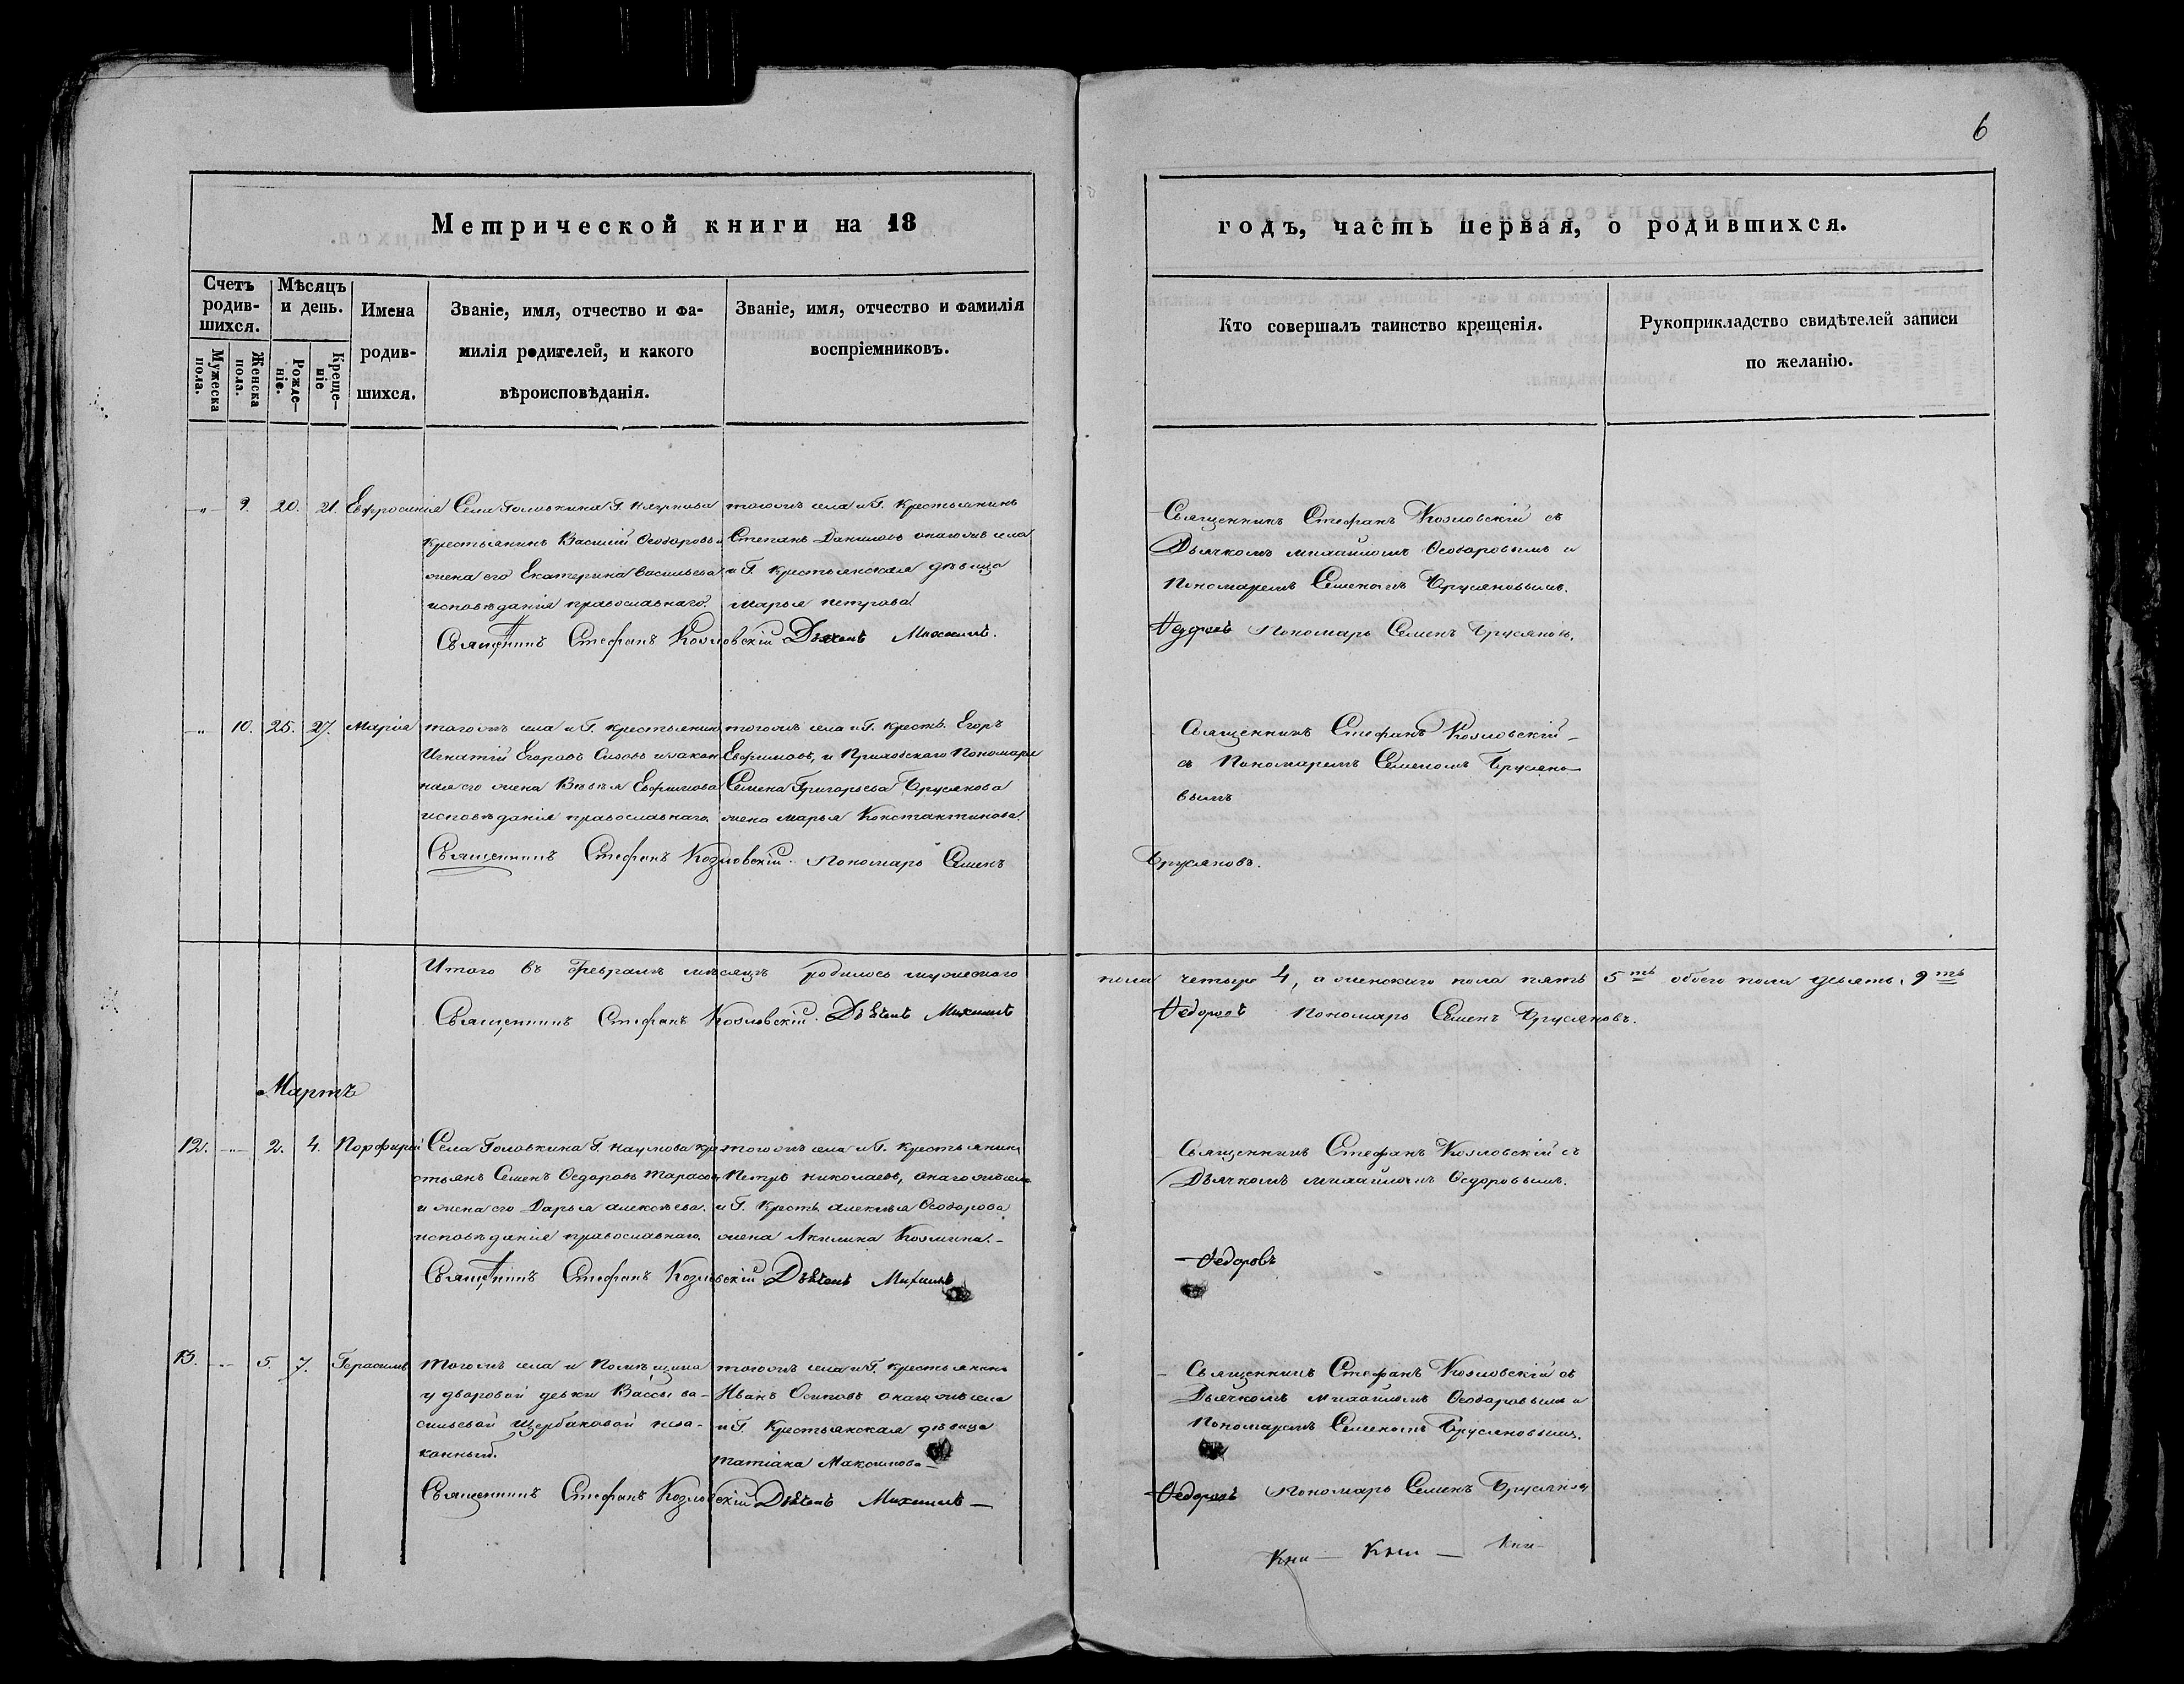 6
Метрической книги на 18
годъ, часть первая, о родившихся.
Счетъ родив-шихся.
Мужеска пола.
Женска пола.
Мѣсяцъ и день.
Рожде-ніе.
Креще-ніе
Имена родив-шихся.
Званіе, имя, отчество и фа-
милія родителей, и какого
вѣроисповѣданія.
Званіе, имя, отчество и фамилія
воспріемниковъ.
Кто совершалъ таинство крещенія.
Рукоприкладство свидѣтелей записи
по желанію.
„ 9. 20. 21. Евфросинія
Села Головкина Г. Наумова
крестьянинъ Василій Ѳеодоровъ и
жена его Екатерина Васильева
исповѣданія православнаго.
тогожъ села и Г. Крестьянинъ
Степанъ Даниловъ онагожъ села
и Г. Крестьянская дѣвица
Марья Петрова
Священникъ Стефанъ Козловскій съ
Дьячкомъ Михаиломъ Ѳеодоровымъ и
Пономаремъ Семеномъ Брусяновымъ.
Священникъ Стефанъ Козловскій Дьячекъ Михаилъ Ѳедоровъ Пономарь Семенъ Брусяновъ.
„ 10. 25. 27. Марія
тогожъ села и Г. крестьянинъ
Игнатій Егоровъ Сизовъ и закон
ная его жена Евфимова
исповѣданія православнаго.
тогожъ села и Г. крест. Егоръ
Евфимовъ, и Приходскаго Пономаря
Семена Григорьева Брусянова
жена Марья Константинова.
Священникъ Стефанъ Козловскій
съ Пономаремъ Семеномъ Брусяно
вымъ
Священникъ Стефанъ Козловскій. Пономарь Семенъ Брусяновъ.
Итого въ Февралѣ мѣсяцѣ родилось мужескаго пола четыре 4, а женскаго пола пять 5ть обоего пола девять. 9ть
Священникъ Стефанъ Козловскій. Дьячекъ Михаилъ Ѳедоровъ Пономарь Семенъ Брусяновъ.
Мартъ
12. „ 2. 4. Порфирій
Села Головкина Г. Наумова кре
стьян Семенъ Ѳедоровъ Тарасовъ
и жена его Дарья Алексѣева.
исповѣданія православнаго.
тогожъ села и Г. Крестьянинъ
Петръ Николаевъ, онагожъ села
и Г. Крест. Алексѣя Ѳеодорова
жена Акилина Козмина.
Священникъ Стефанъ Козловскій съ
Дьячкомъ Михаиломъ Ѳедоровымъ.
Священникъ Стефанъ Козловскій Дьячекъ Михаилъ Ѳедоровъ
13. „ 5. 7. Герасимъ
Тогожъ села и Помѣщика
у дворовой девки Вассы Ва-
сильевой Щербаковой неза-
конный.
тогожъ села и Г. Крестьянинъ
Иванъ Осиповъ онагожъ села
и Г. Крестьянская дѣвица
Татіана Максимова
Священникъ Стефанъ Козловскій съ
Дьячкомъ Михаиломъ Ѳеодоровымъ и
Пономаремъ Семеномъ Брусяновымъ.
Священникъ Стефанъ Козловскій Дьячекъ Михаилъ Ѳедоровъ Пономарь Семенъ Брусяновъ
Кни — Кни — Кни-